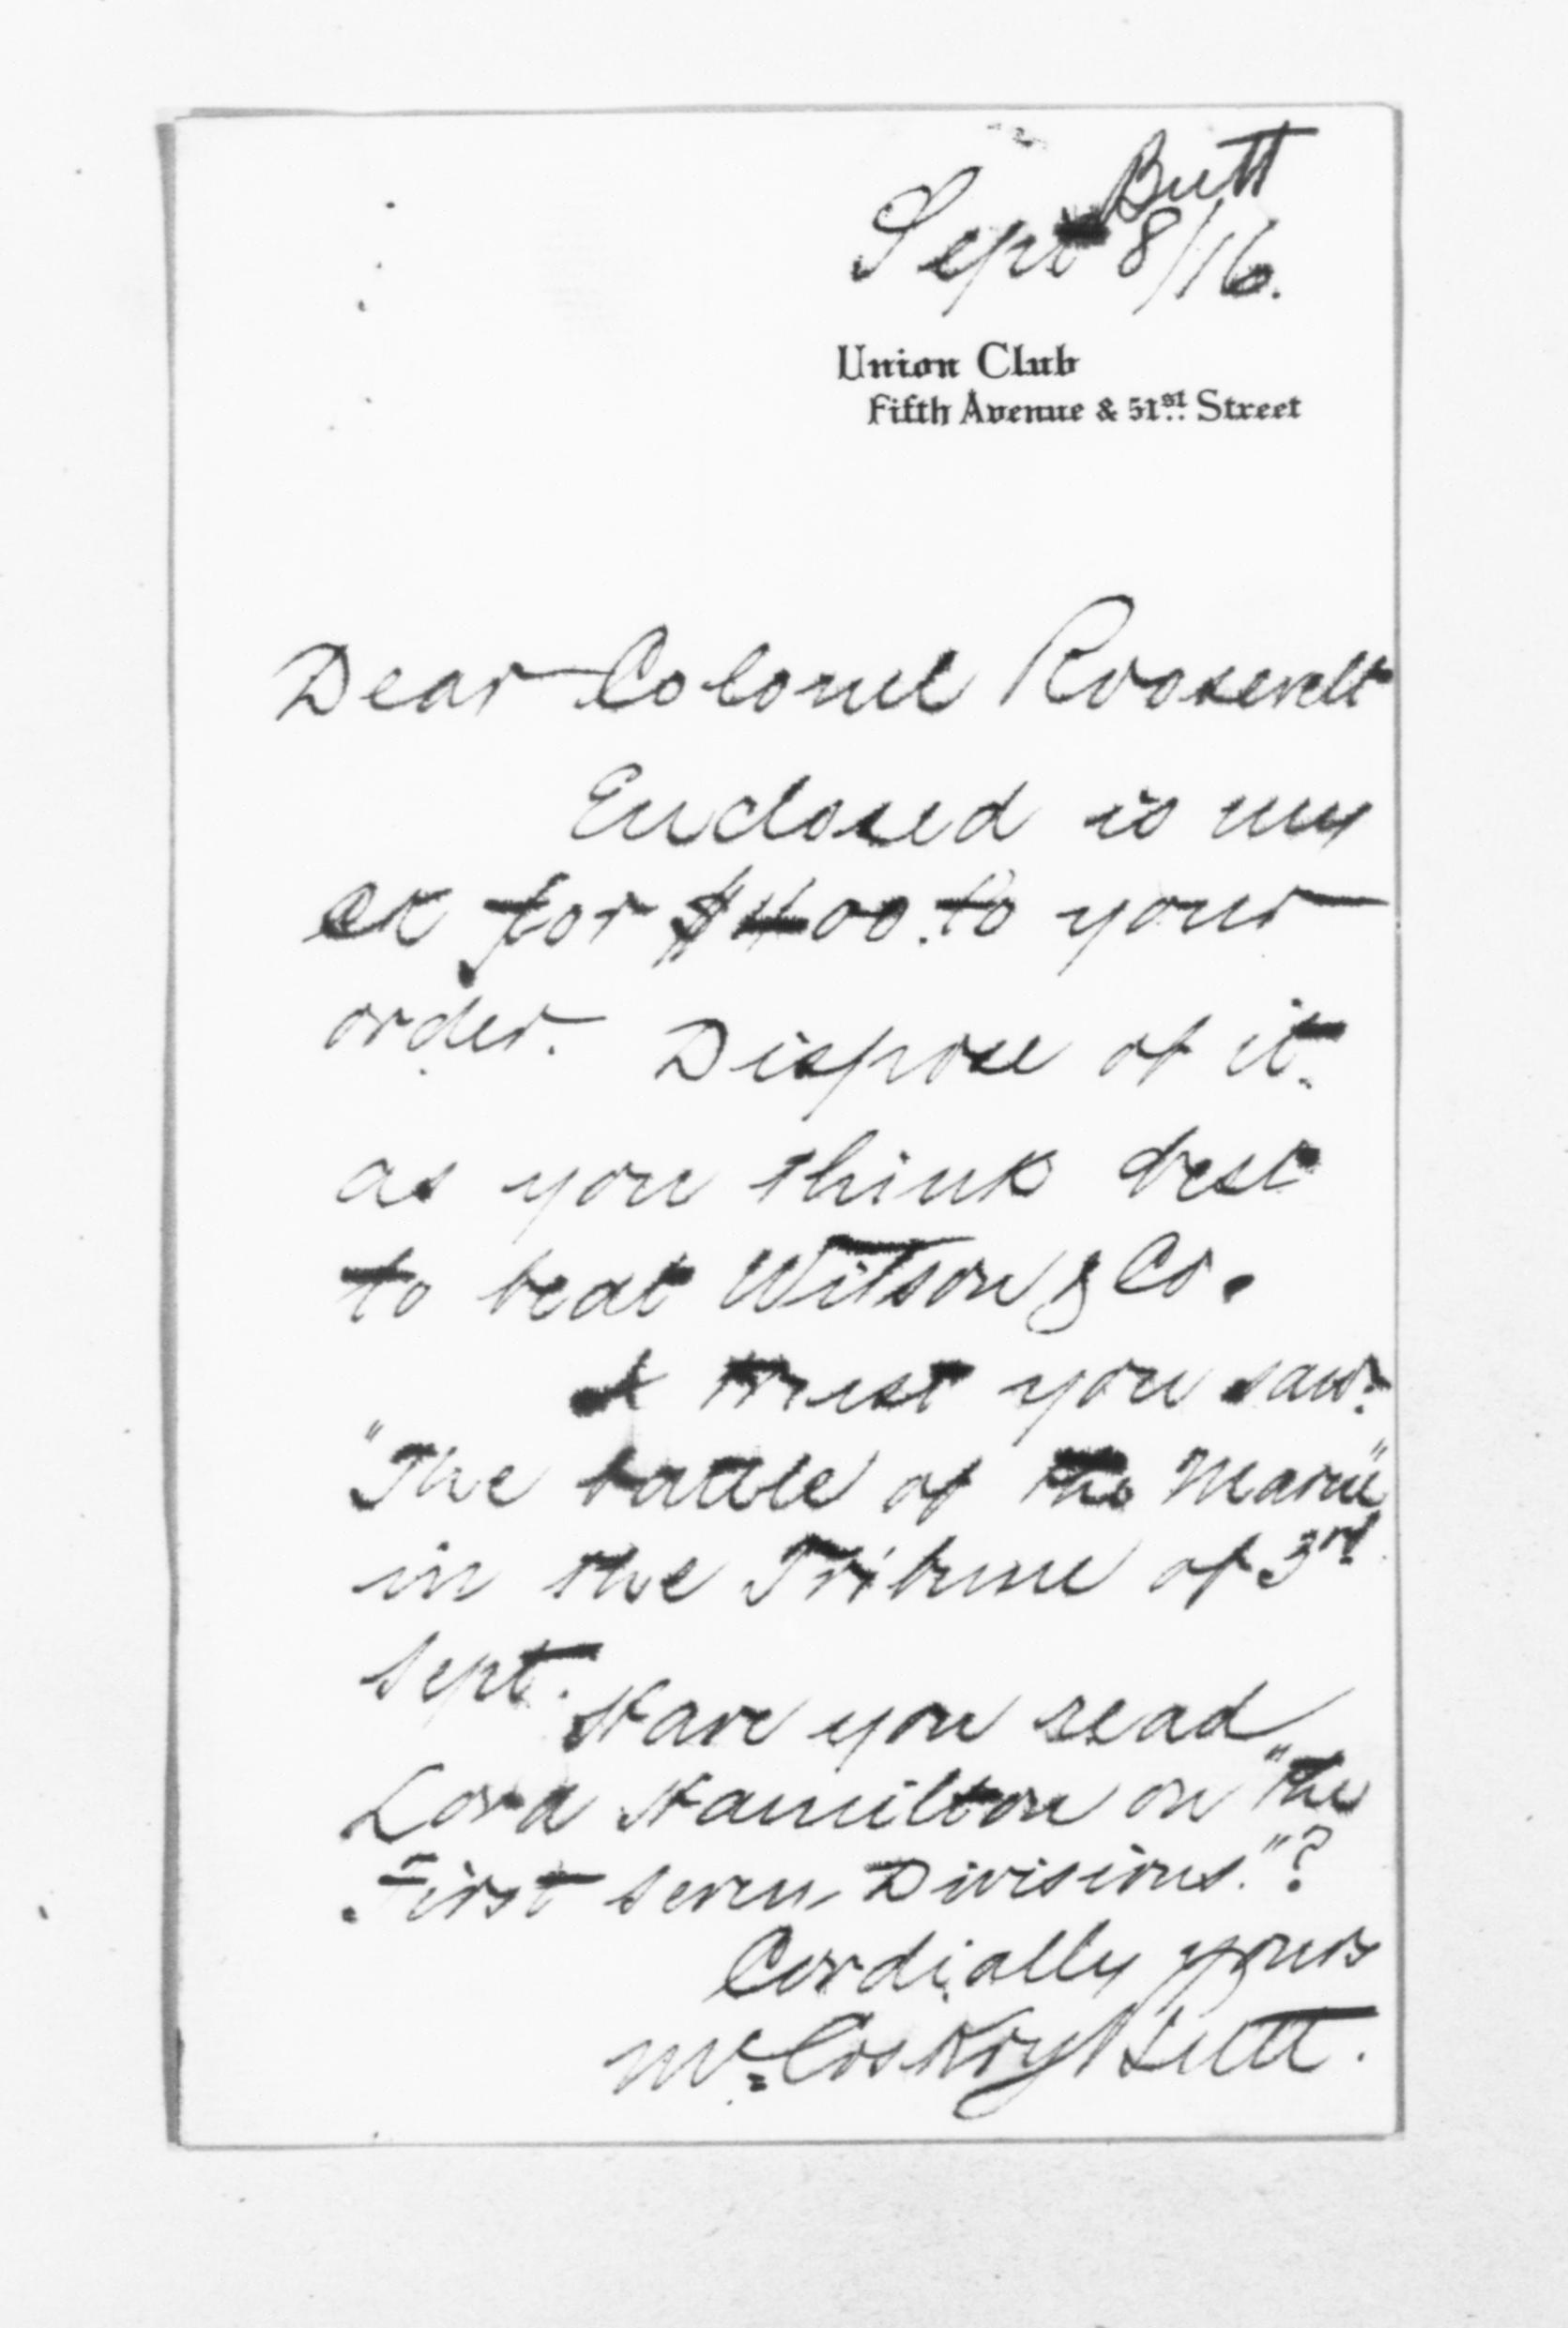 Butt
Sept 8/16.
Union Club
Fifth Avenue & 51st Street
Dear Colonel Roosevelt
Enclosed is my
ck for $400. to your
order. Dispose of it
as you think best
to beat Wilson & Co.
I trust you saw
"The battle of the Marne"
in the Tribune of 3rd
Sept. Have you read
Lord Hamilton on "the
First Seven Divisions."?
Cordially yours
McCoskry Butt.